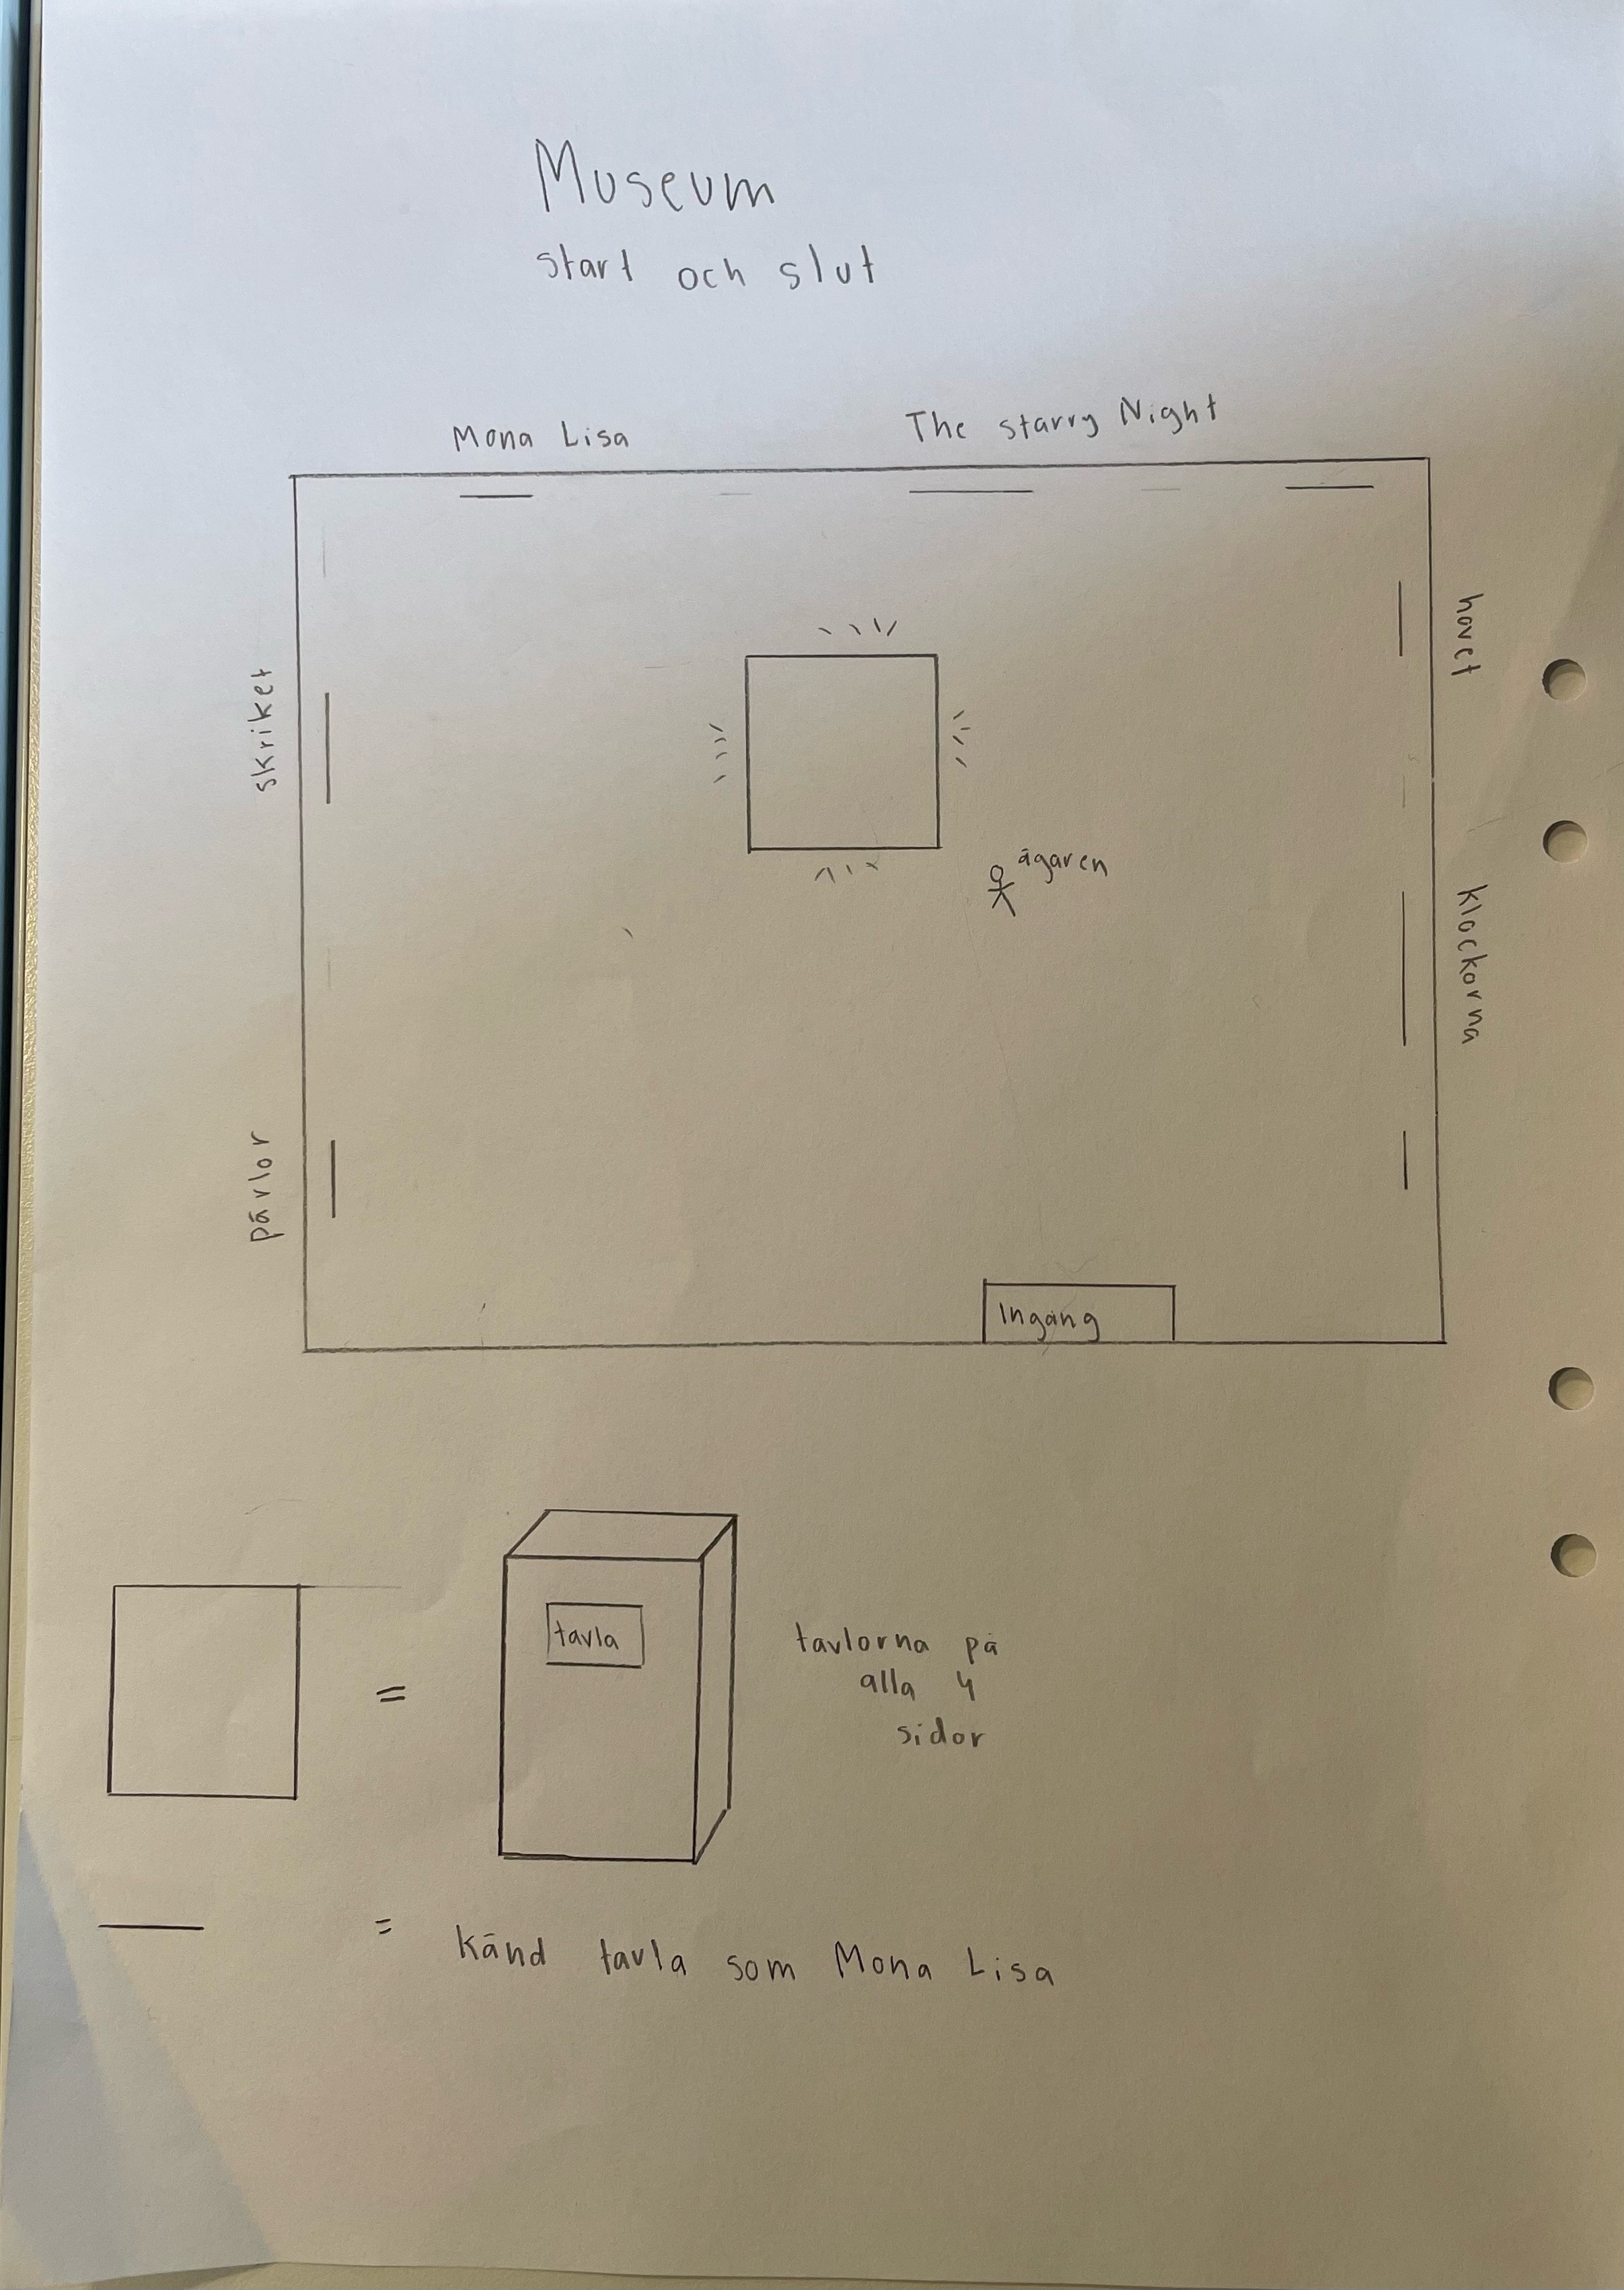 Museum
start och slut
Mona Lisa
The starry Night
skriket
havet
ägaren
klockorna
pärlor
Ingång
tavla
tavlorna på
alla 4
sidor
=
=
känd tavla som Mona Lisa